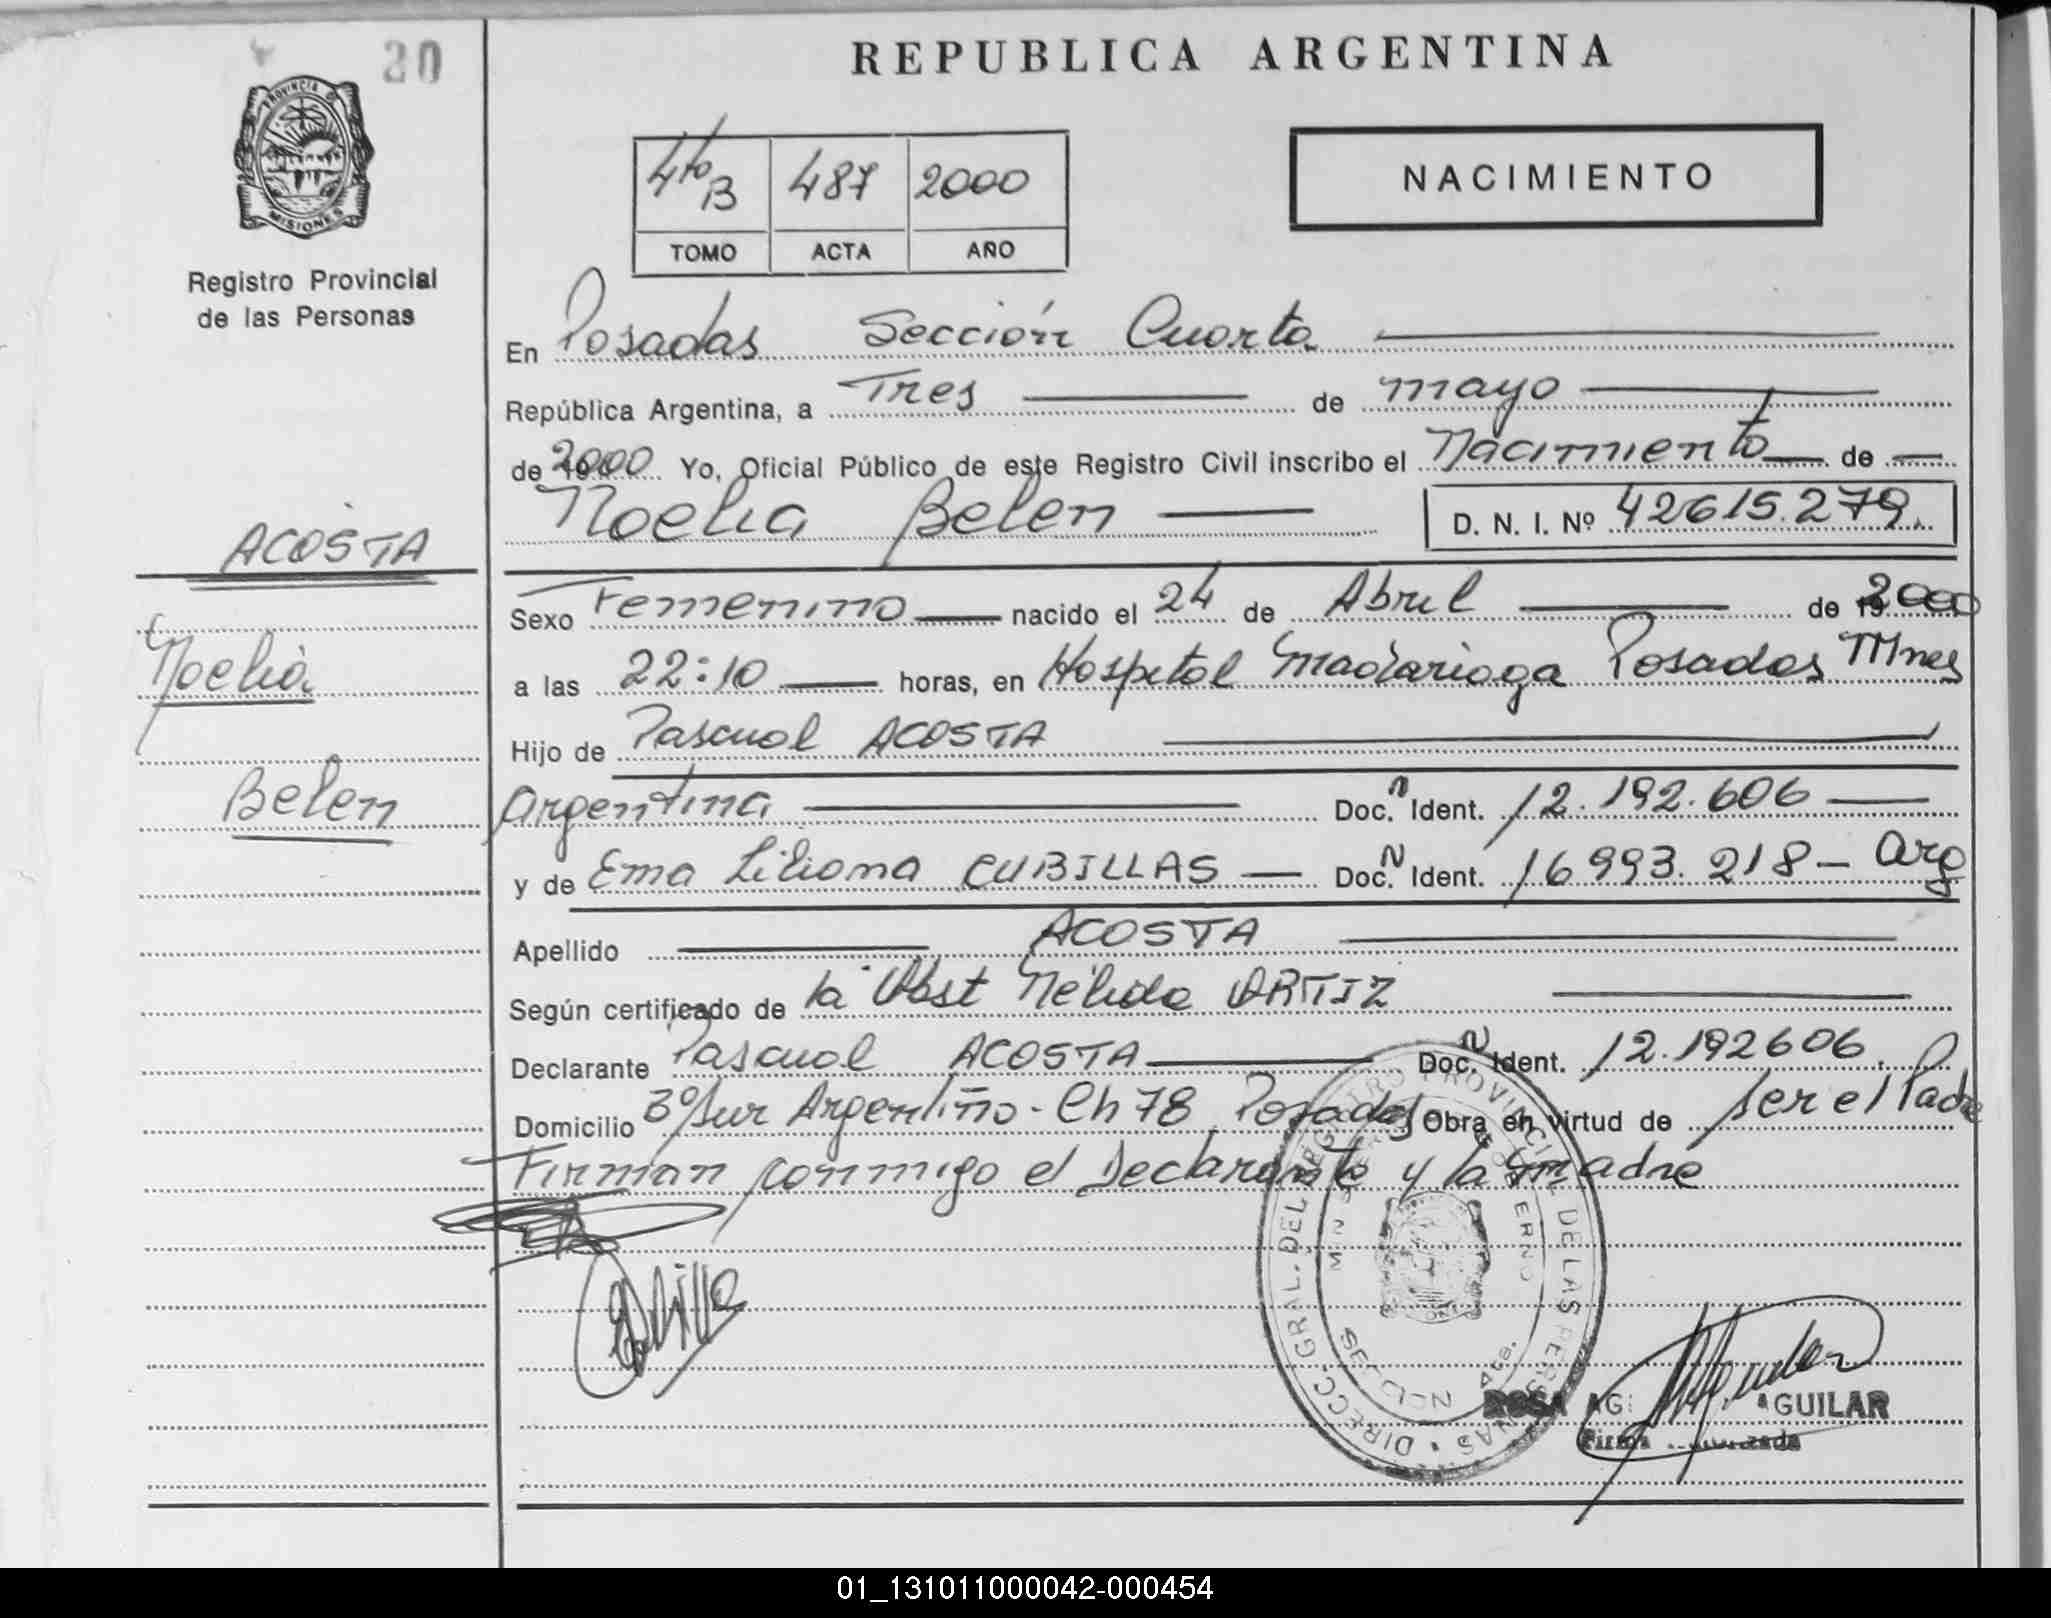 30
REPUBLICA ARGENTINA
PROVINCIA DE MISIONES
Registro Provincial
de las Personas
4to B 487 2000
TOMO ACTA AÑO
NACIMIENTO
En Posadas Sección Cuarta
República Argentina, a Tres de mayo
de 2000 Yo, Oficial Público de este Registro Civil inscribo el Nacimiento de
Noelia Belen D. N. I. Nº 42615.279
ACOSTA
Noelia
Belen
Sexo Femenino nacido el 24 de Abril de 2000
a las 22:10 horas, en Hospital Madariaga Posadas Mnes
Hijo de Pascual ACOSTA
Argentina Doc. N Ident. 12.192.606
y de Ema Liliana CUBILLAS Doc. N Ident. 16993.218 - Arg
Apellido ACOSTA
Según certificado de la Obst Nélida ORTIZ
Declarante Pascual ACOSTA Doc. N Ident. 12.192606.
Domicilio Bº Sur Argentino - Ch 78 Posadas Obra en virtud de ser el Padre
Firman conmigo el Declarante y la madre
DIRECC. GRAL. DEL REGISTRO PROVINCIAL DE LAS PERSONAS
SECCION 4ta.
ROSA AGUILAR
Firma
01_131011000042-000454